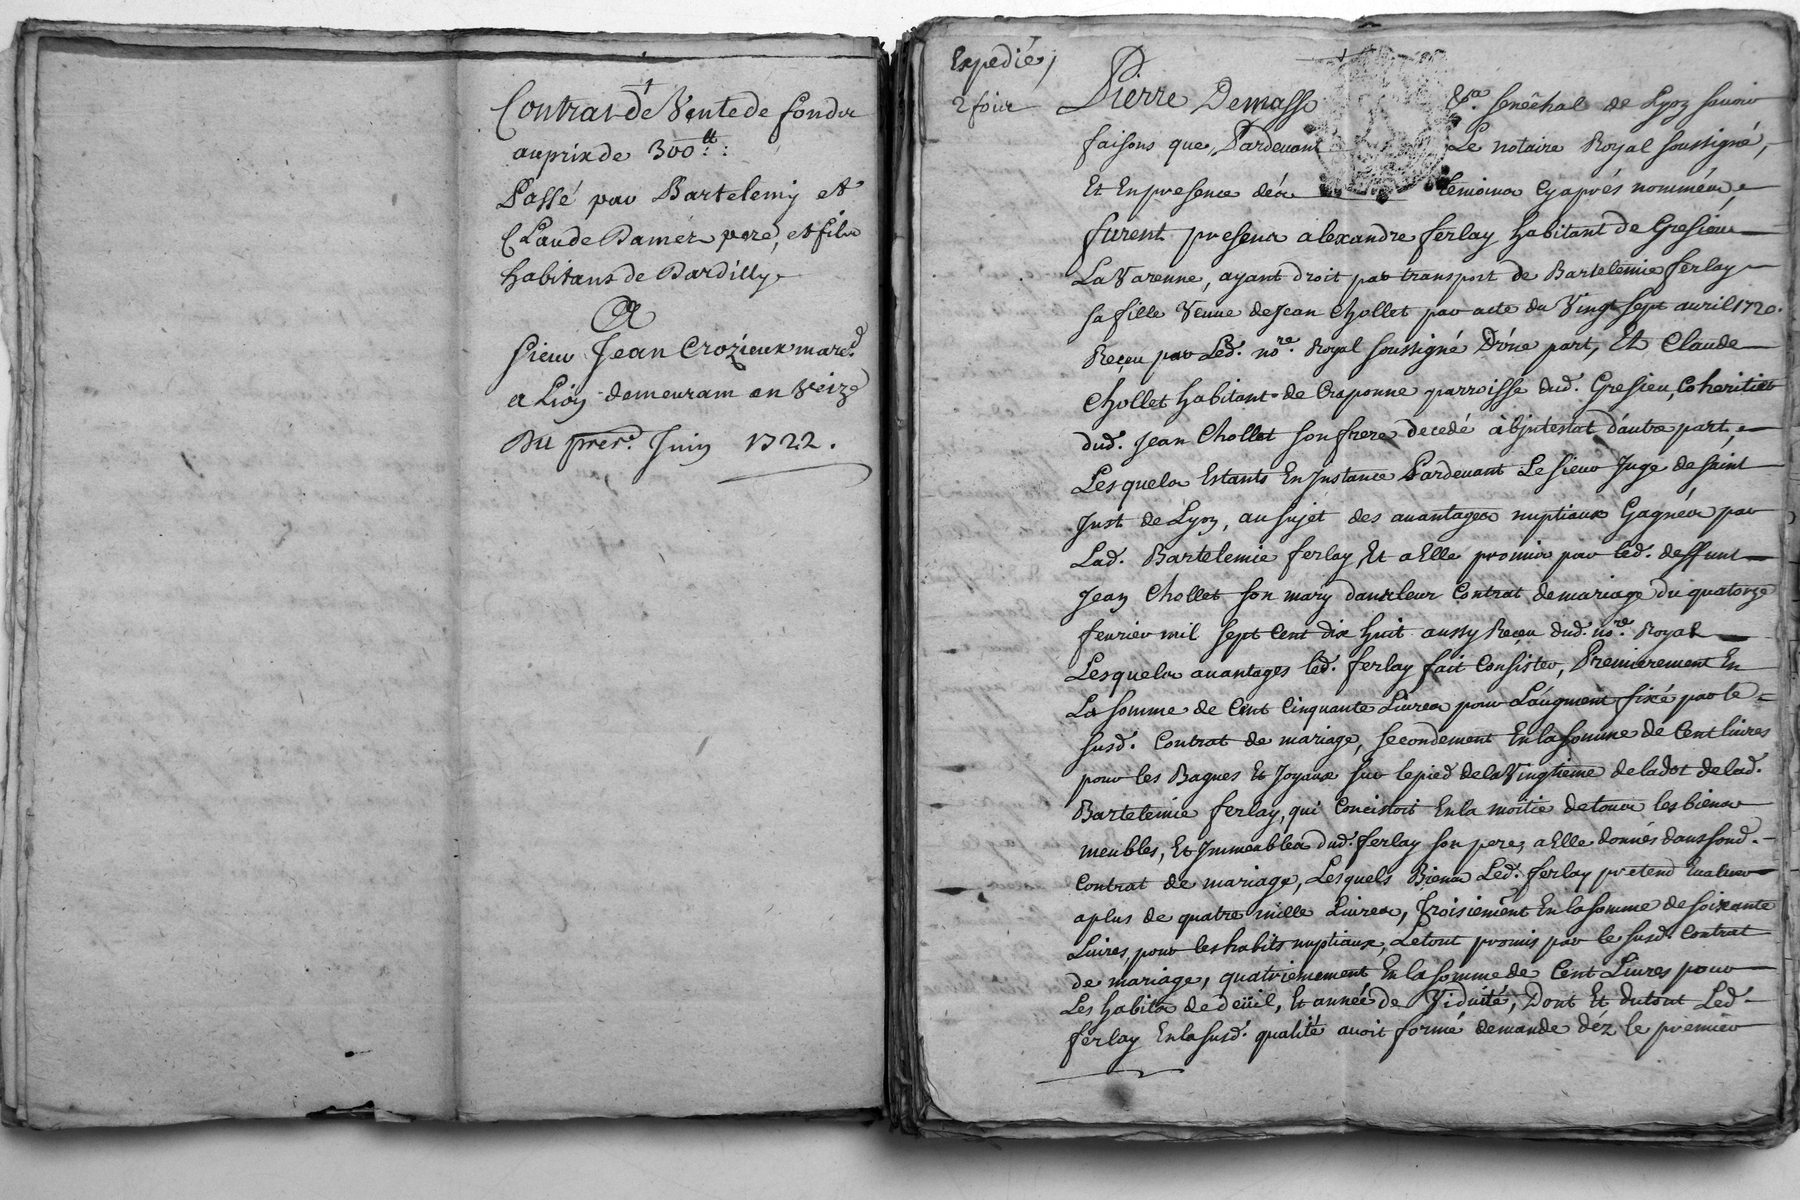 Contrat de Vente de fonds
au prix de 300ₜₜ :
Passé par Bartelemy et
Claude Damez pere, et fils
habitans de Dardilly
A
sieur Jean Crozieux marcd
a Lion demeurant en Veize
Du premr. Juin 1722.
Expedié,
2 fois
Pierre Demasso &a. senéchal de Lyon savoir
faisons que, Pardevant Le notaire Royal soussigné,
Et En presence dés témoins cy aprés nommés,
furent presens alexandre ferlay habitant de Gresieu
La Varenne, ayant droit par transport de Bartelemie ferlay
sa fille Veuve de Jean Chollet par acte du Vingt sept avril 1720.
Receu par Led. nore. Royal soussigné D'úne part, Et Claude
Chollet habitant de Craponne parroisse dud. Gresieu, Coheritier
dud. Jean Chollet son frere decedé ab Jntestat d'autre part,
Lesquels Estants En Jnstance Pardevant Le sieur Juge de saint
Just de Lyon, au sujet des avantages nuptiaux Gagnés par
Lad. Bartelemie ferlay, Et a Elle promis par led. deffunt
Jean Chollet son mary dans leur Contrat de mariage du quatorze
fevrier mil sept Cent dix huit aussy Receu dud. nore. Royal
Lesquels avantages led. ferlay fait Consister, Premierement En
La somme de Cent Cinquante Livres pour L'augment fixé par le
susd. Contrat de mariage, secondement En la somme de Cent livres
pour les Bagues Et Joyaux sur le pied de la Vingtieme de la dot de lad.
Bartelemie ferlay, qui Concistoit En la moitie de tous les biens
meubles, Et Jmmeubles dud. ferlay son pere, a Elle donnés dans sond.
Contrat de mariage, Lesquels Biens Led. ferlay pretend Evaluer
a plus de quatre mille Livres, Troisiement En la somme de soixante
Livres, pour les habits nuptiaux, Le tout promis par le susd. Contrat
de mariage, quatriemement En la somme de Cent Livres pour
Les habits de deüil, Et année de Viduité, Dont Et du tout Led.
ferlay En la susd. qualité avoit formé demande déz le premier